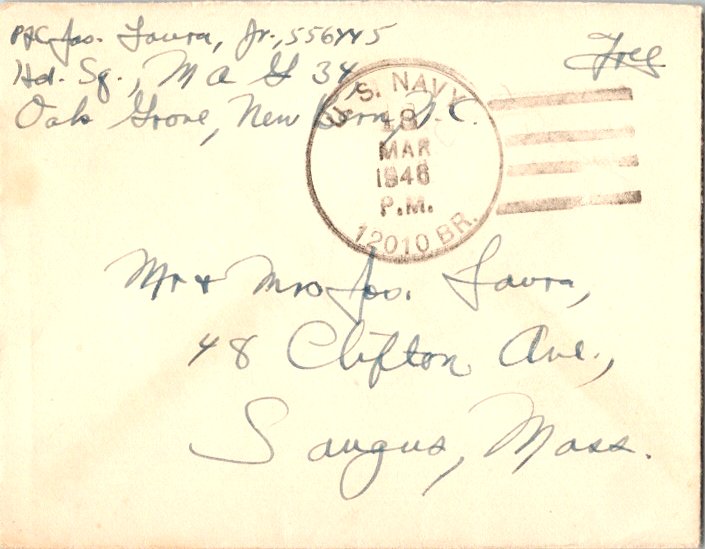 Pfc Jos. Laura, Jr., 556445
Free
Hd. Sq., M A G 34,
Oak Grove, New Bern, N.C.
U. S. NAVY
18
MAR
1946
P.M.
12010 BR.
Mr & Mrs Jos. Laura,
48 Clifton Ave.,
Saugus, Mass.